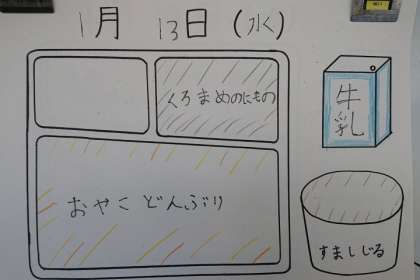 1月 13日 (水)
くろまめのにもの
牛乳
おやこどんぶり
すましじる